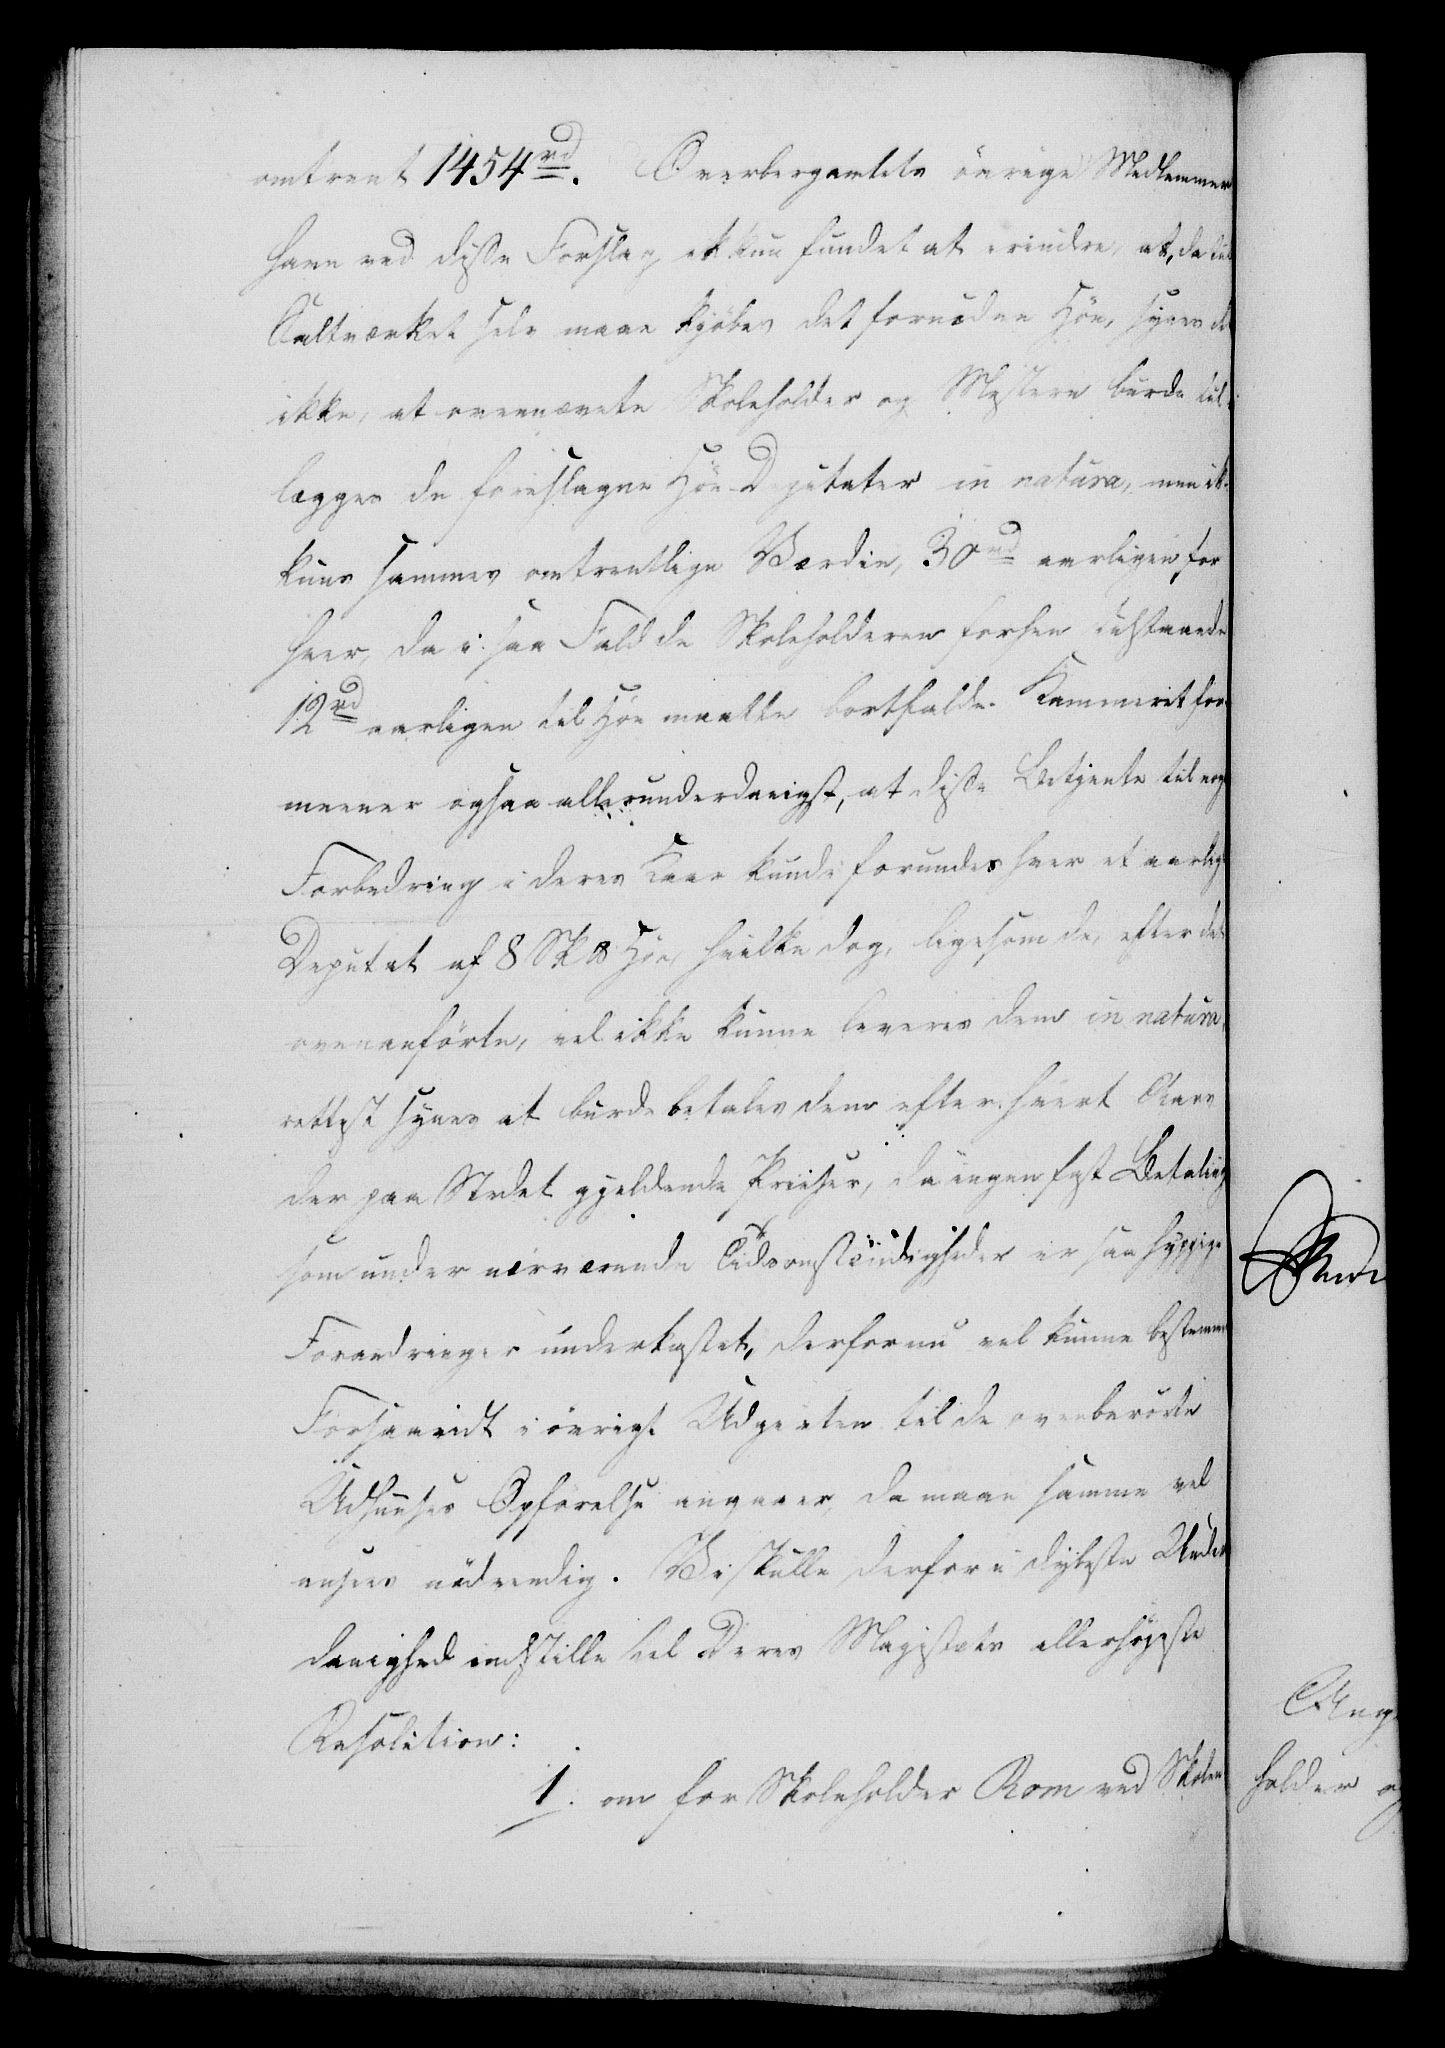 omtrent 1454rd. Overbergamtets övrige Medlemmer
have ved disse Forslag ikkun fundet at erindre, at, da til
Saltværket selv maae kjøbes det fornødne Höe, synes de
ikke, at ovennævnte Skoleholder og Mestere burde til-
lægges de foreslagne Höe-Deputater in natura, men ik-
kuns sammes omtrentlige Værdie, 30rd aarligen for
hver, da i saa Fald de Skoleholderen forhen tilstaaede
12rd aarligen til Höe maatte bortfalde. Kammeret for-
meener ogsaa allerunderdanigst, at disse Betjente til nogen
Forbedring i deres Kaar kunde forundes hver et aarligt
Deputat af 8 Sk℔ Höe, hvilke dog, ligesom de, efter det
ovenanförte, vel ikke kunne leveres dem in natura,
rettest synes at burde betales dem efter hvert Aars
der paa Stedet gjeldende Priiser, da ingen fast Betaling,
som under nærværende Tidsomstændigheder er saa hyppige
Forandringer underkastet, derfor nu vel kunne bestemmes
Forsaavidt i övrigt Udgivten til de ovenberörte
Udhuuses Opförelse angaaer, da maae samme vel
ansees nödvendig. Vi skulle derfor i dybeste Under
danighed indstille til Deres Majestæts allerhöjeste
Resolution:
1. om for Skoleholder Rom ved Skolen
holder og